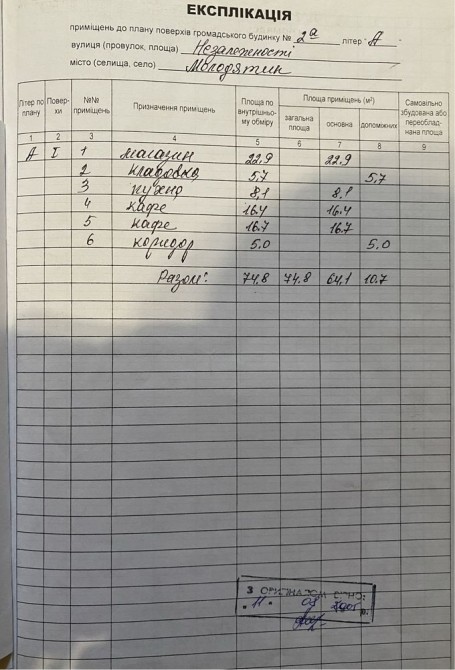 ЕКСПЛІКАЦІЯ
приміщень до плану поверхів громадського будинку № 2а літер "А"
вулиця (провулок, площа) Незалежності
місто (селища, село) Молодятин
Літер по плану | Поверхи | №№ приміщень | Призначення приміщень | Площа по внутрішньому обміру | Площа приміщень (м²) | загальна площа | основна | допоміжних | Самовільно збудована або переобладнана площа
1 2 3 4 5 6 7 8 9
А І 1 магазин 22,9 22,9
2 кладовка 5,7 5,7
3 кухня 8,1 8,1
4 кафе 16,4 16.4
5 кафе 16.7 16.7
6 коридор 5.0 5.0
Разом: 74,8 74,8 64,1 10.7
З ОРИГІНАЛОМ
11. 03